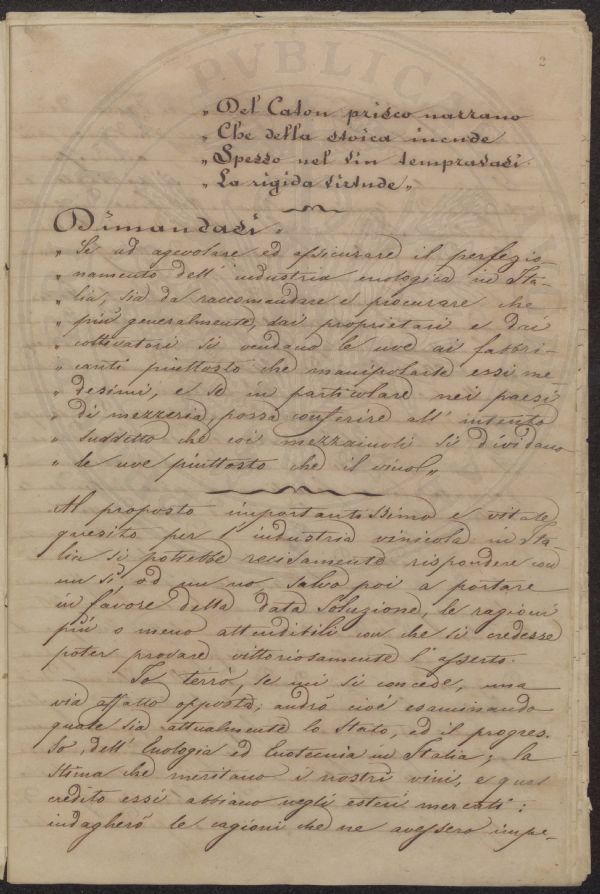 2
„ Del Caton prisco narrano
„ Che della stoica incude
„ Spesso nel vin tempravasi
„ La rigida virtude „
Dimandasi:
„ Se ad agevolare ed assicurare il perfezio-
„ namento dell' industria enologica in Ita-
„ lia, sia da raccomandare e procurare che
„ più generalmente, dai proprietari e dai
„ coltivatori si vendano le uve ai fabbri-
„ canti piuttosto che manipolarle essi me
„ desimi, e se in particolare nei paesi
„ di mezzeria, possa conferire all' intento
„ suddetto che coi mezzaiuoli si dividano
„ le uve piuttosto che il vino „
Al proposto importantissimo e vitale
quesito per l' industria vinicola in Ita-
lia si potrebbe recisamente rispondere con
un sì, od un no, salvo poi a portare
in favore della data soluzione, le ragioni
più o meno attendibili con che si credesse
poter provare vittoriosamente l' asserto.
Io terrò, se mi si concede, una
via affatto opposta; andrò cioè esaminando
quale sia attualmente lo stato, ed il progres-
so, dell' Enologia ed Enotecnia in Italia; la
stima che meritano i nostri vini, e qual
credito essi abbiano negli esteri mercati:
indagherò le cagioni che ne avessero impe-
PUBLIC